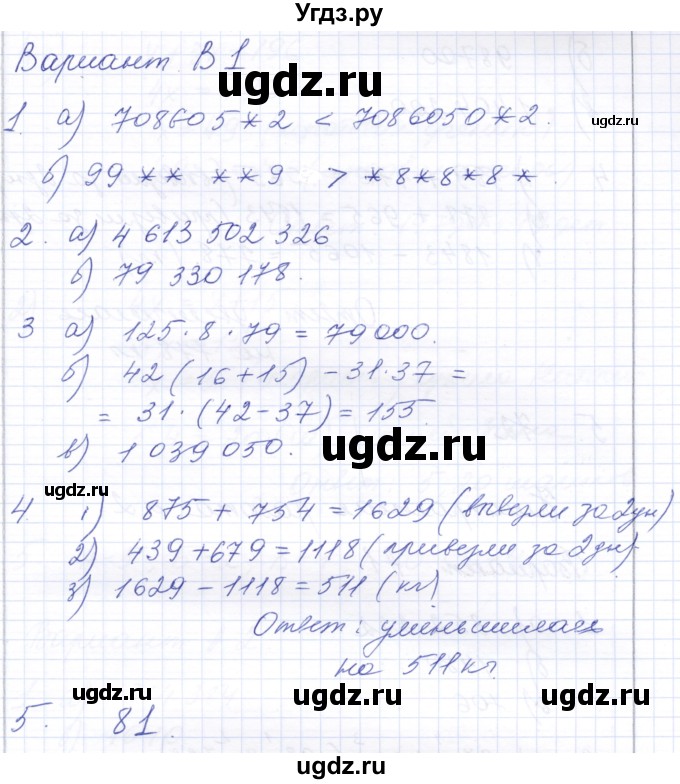 Угдз.ру
Вариант В1
ugdz.ru
1. а) 708605*2 < 7086050*2.
ugdz.ru
б) 99** **9 > *8*8*8*.
2. а) 4 613 502 326
б) 79 330 178.
ugdz.ru
3 а) 125·8·79 = 79000.
б) 42(16+15) - 31·37 =
= 31·(42-37) = 155.
в) 1 039 050.
ugdz.ru
ugdz.ru
4. 1) 875 + 754 = 1629 (ввезли за 2дн)
2) 439+679 = 1118 (привезли за 2дн)
3) 1629 - 1118 = 511 (кг)
ugdz.ru
Ответ: уменьшилась
на 511кг.
ugdz.ru
ugdz.ru
ugdz.ru
5. 81.
ugdz.ru
ugdz.ru